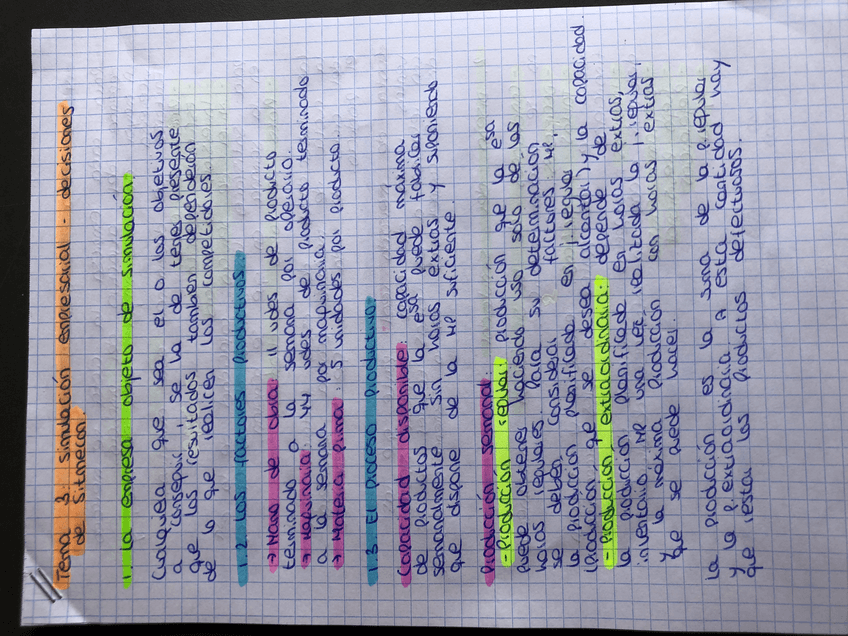 Tema 3: simulación empresarial - decisiones
de sitmecom.
1. la empresa objeto de simulación.
Cualquiera que sea el o los objetivos
a conseguir, se ha de tener presente
que los resultados también dependerán
de lo que realicen los competidores.
1.2. Los factores productivos
→ Mano de obra: 11 udes de producto
terminado a la semana por operario.
→ Maquinaria: 44 udes de producto terminado
a la semana por maquinaria.
→ Materia prima: 5 unidades por producto.
1.3 El proceso productivo
Capacidad disponible: capacidad máxima
de productos que la esa puede fabricar
semanalmente sin horas extras y suponiendo
que dispone de la MP suficiente.
Producción semanal:
- Producción regular: producción que la esa
puede obtener haciendo uso solo de las
horas regulares. Para su determinación
se deben considerar factores: MP,
la producción planificada en j. regular
(Producción que se desea alcanzar) y la capacidad.
- Producción extraordinaria: depende de
la producción planificada en horas extras,
inventario MP una vez realizada la j. regular,
y la máxima producción con horas extras
que se puede hacer.
la producción es la suma de la p. regular
y la p. extraordinaria. A esta cantidad hay
que restar los productos defectuosos.